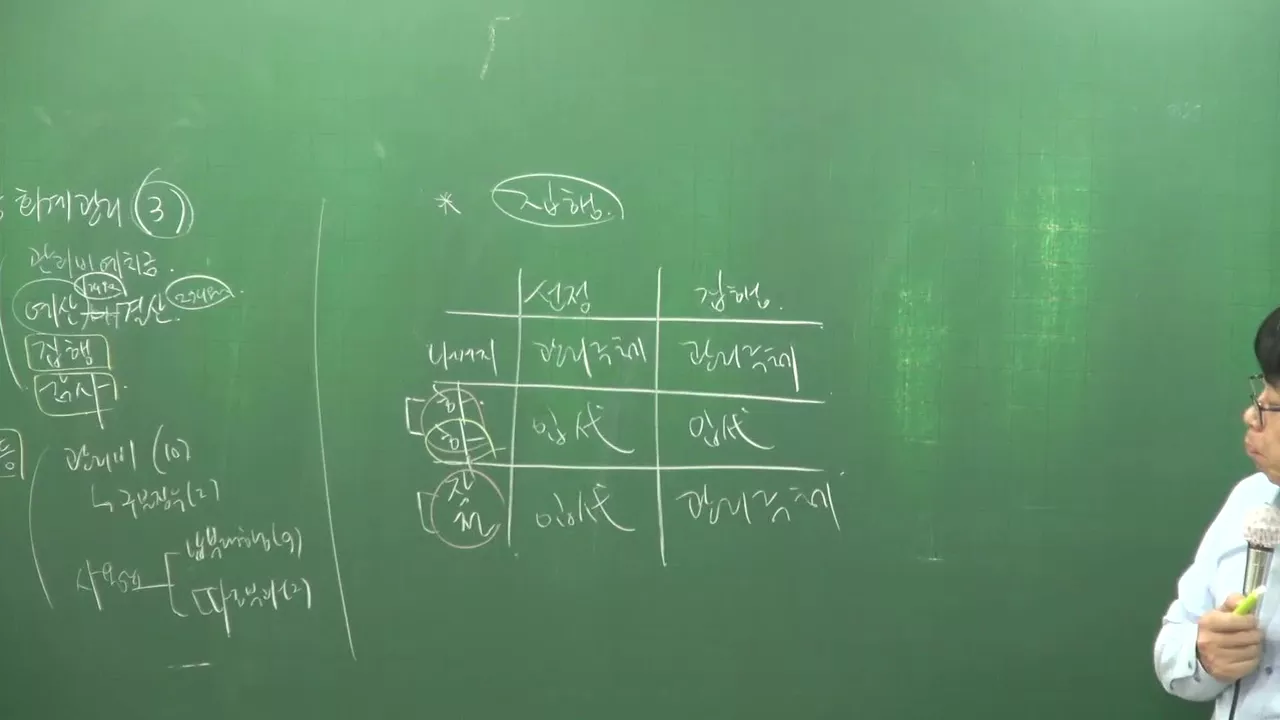 회계관리 ③
관리비예치금.
예산 결산.
집행
감사
관리비 (10)
↳ 구분징수(2)
사용료
납부대행(9)
따로부과(2)
* 집행.
선정 집행.
나머지 관리주체 관리주체
하 입代 입代
장 입代 관리주체